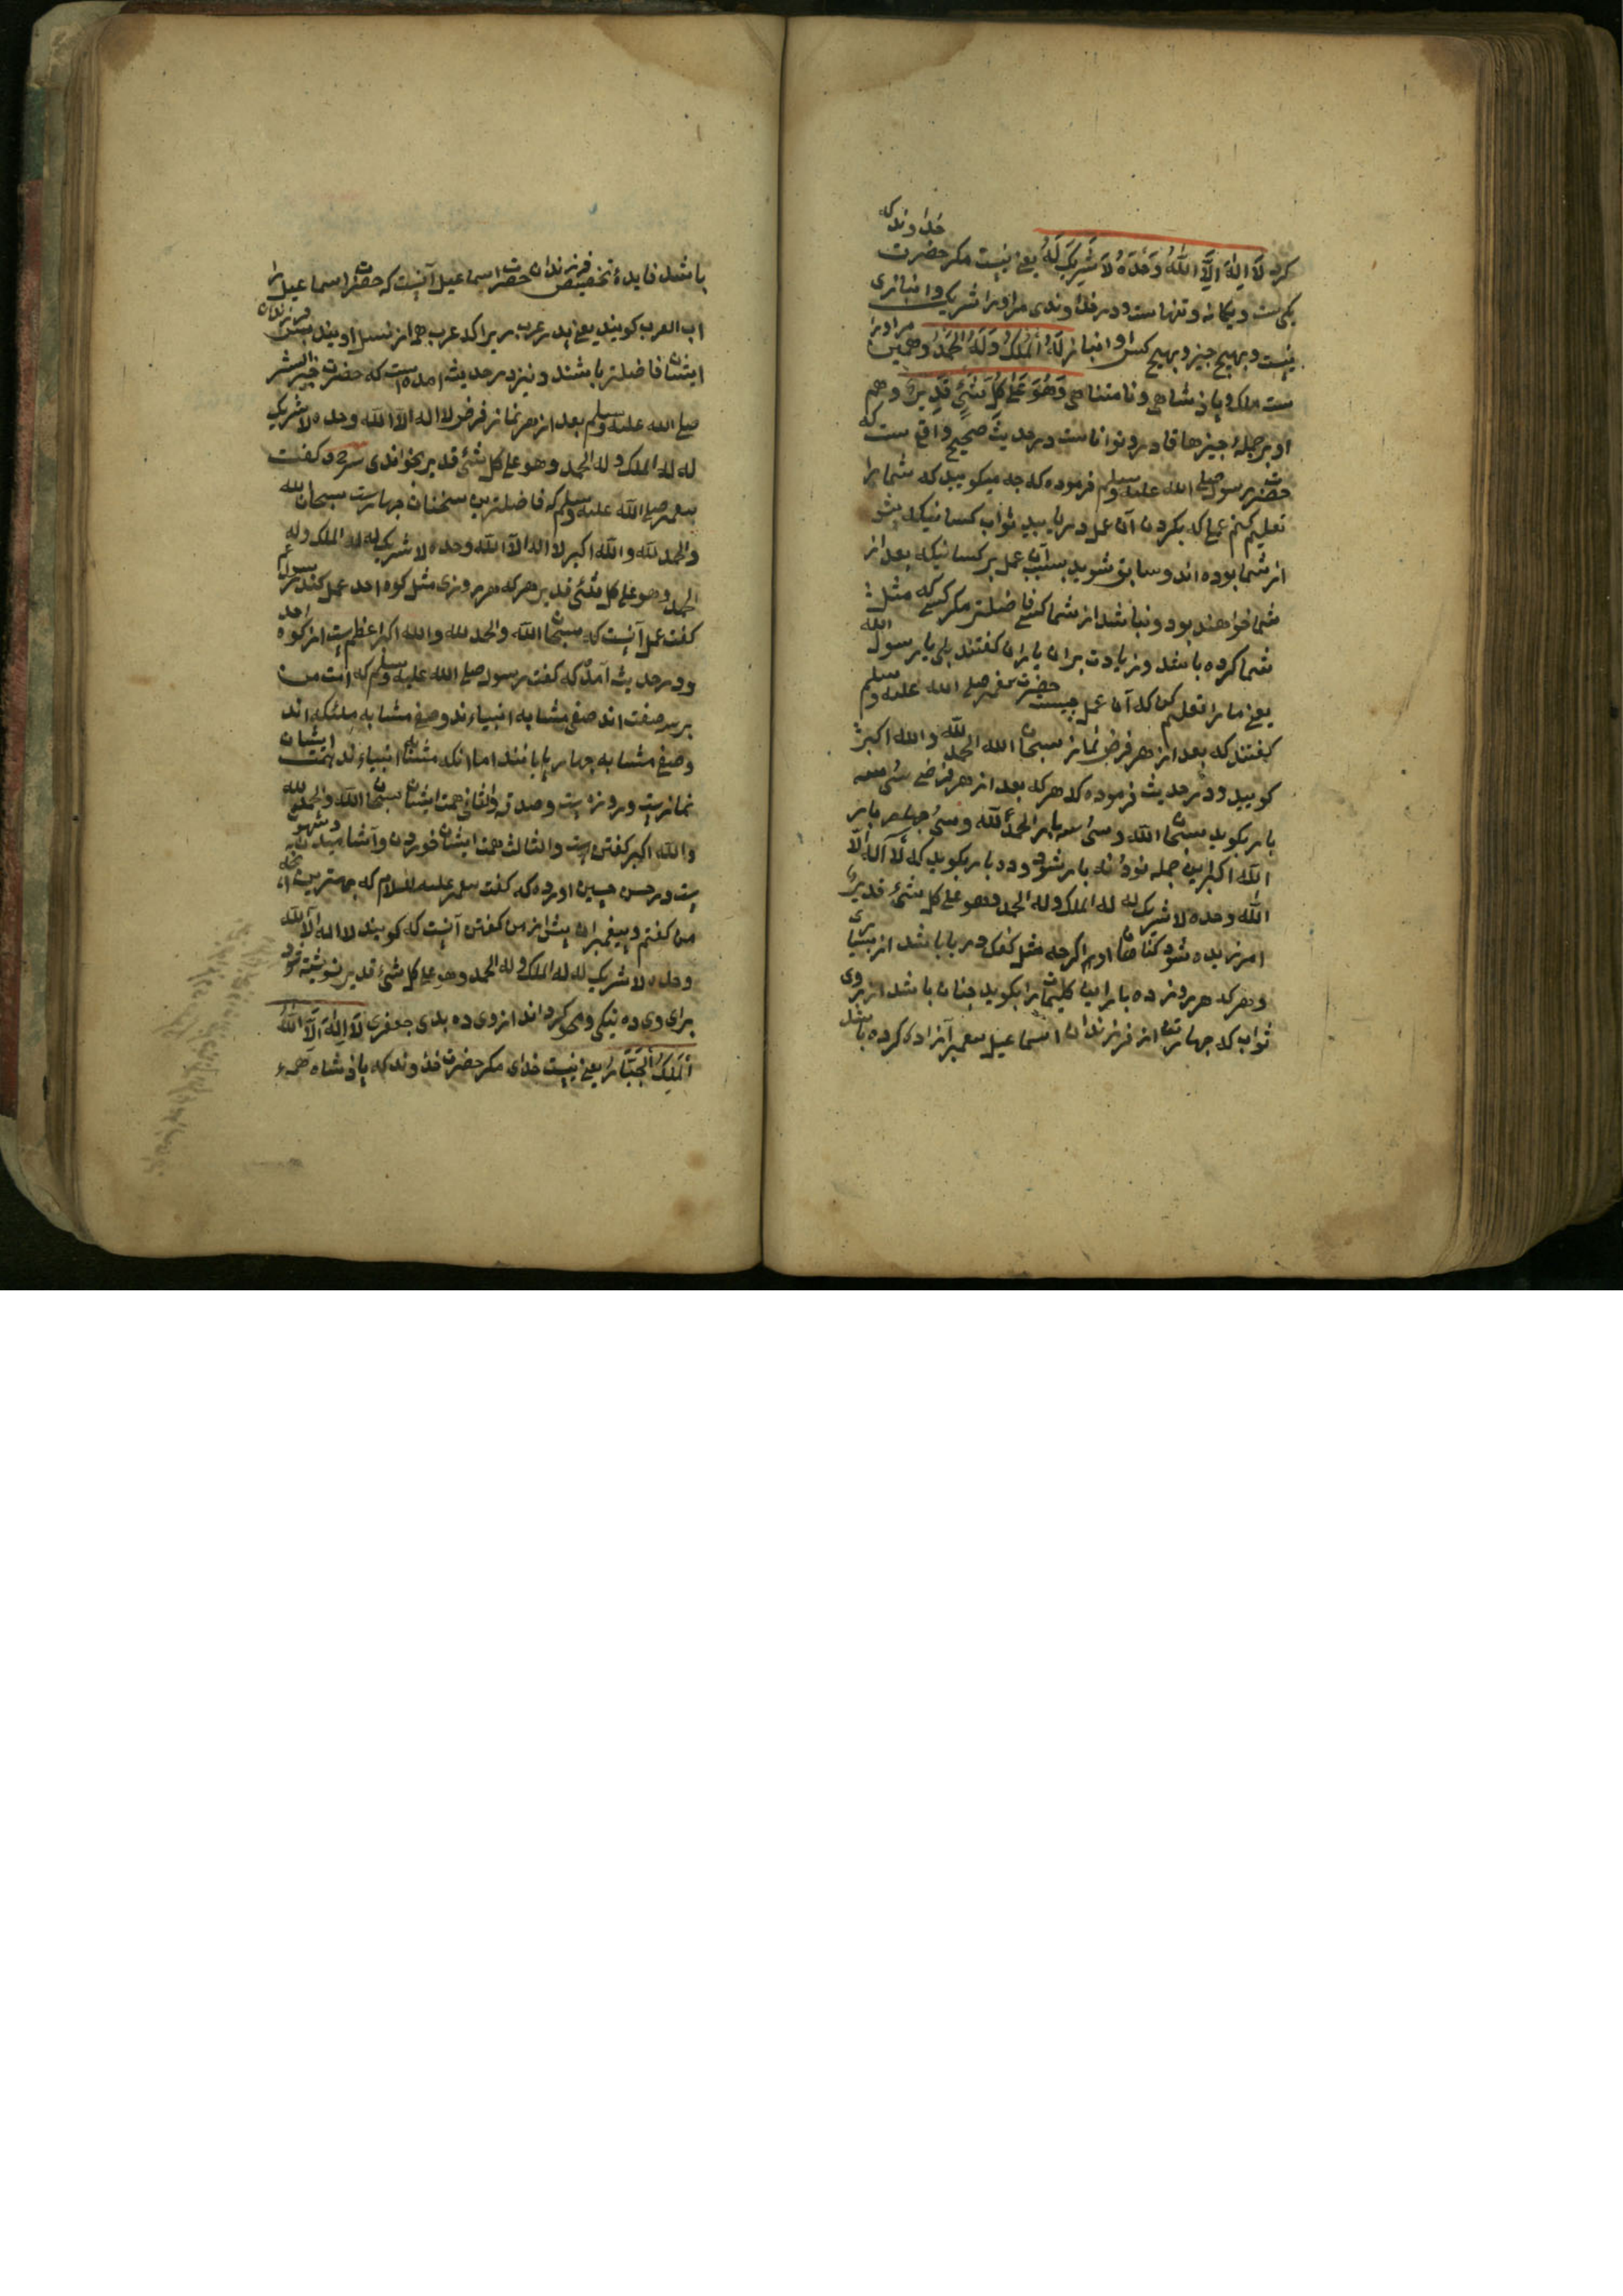 کرد لَا اِلٰهَ اِلَّا اللّٰهُ وَحْدَهُ لَا شَرِيكَ لَهُ یعنی نیست مکر حضرت خداوند که
یکی ست ویکانه و تنهاست و در خداوندی مر او را شریک و انبازی
نیست و بهیج جیز و بهیج کس او انباز لَهُ الْمُلْكُ وَلَهُ الْحَمْدُ وهمین مر او را
ست ملک و پادشاهی و نامتناهی وَهُوَ عَلٰی كُلِّ شَیْءٍ قَدِيرٌ وهم
او بر جملهٔ جیزها قادر و تواناست در حدیث صحیح واقع ست که
حضرت رسول صلی الله علیه وسلم فرموده که جه میکویید که شما را
تعلیم کنم عملی که بکردن آن عمل دریابید ثواب کسانیکه پیش
از شما بوده اند و سابق شوید بسبب آن عمل بر کسانیکه بعد از
شما خواهند بود و نباشد از شما کسی فاضلتر مکر کسی که مثل
شما کرده باشد و زیادت بران یاران کفتند بلی یا رسول الله
یعنی ما را تعلیم کن که آن عمل چیست حضرت پیغمبر صلی الله علیه وسلم
کفتند که بعد از هر فرض نماز سبحان الله الحمد لله و الله اکبر
کویید و در حدیث فرموده که هر که بعد از هر فرضی سی وسه
بار بکوید سبحان الله و سی وسه بار الحمد لله و سی وجهار بار
الله اکبر این جمله نود و نه بار شود و ده بار بکوید که لا اله الا
الله وحده لا شریک له له الملک وله الحمد وهو علی کل شیء قدیر
امرزیده شود کناهان او را کرجه مثل کفک دریا باشد از بسیاری
و هر که هر روز ده بار این کلیمات را بکوید جنان باشد از روی
ثواب که جهار تن از فرزندان اسماعیل پیغمبر آزاده کرده باشد
باشد فایدهٔ تخصیص فرزندان حضرت اسماعیل آنست که حضرت اسماعیل را
اب العرب کویند یعنی پدر عرب زیرا که عرب همه از نسل اویند پس فرزندان
ایشان فاضلتر باشند و نیز در حدیث امده است که حضرت خیر البشر
صلی الله علیه وسلم بعد از هر نماز فرض لا اله الا الله وحده لا شریک
له له الملک وله الحمد وهو علی کل شیء قدیر بخواندی و کفت
پیغمبر صلی الله علیه وسلم که فاضلترین سخنان جهارست سبحان الله
والحمد لله والله اکبر لا اله الا الله وحده لا شریک له له الملک وله
الحمد وهو علی کل شیء قدیر هر که هر روزی مثل کوه احد عمل کند رسول عم
کفت عمل آنست که سبحان الله والحمد لله والله اکبر اعظم ست از کوه احد
و در حدیث آمده که کفت رسول صلی الله علیه وسلم که امت من
بر سه صفت اند صنفی مشابه انبیاء ند و صنفی مشابه ملئکه اند
و صنفی مشابه جهار پایانند اما انکه مشابه انبیاء ند همت ایشان
نماز ست و روزه ست و صدقه والثانی همت ایشان سبحان الله والحمد لله
والله اکبر کفتن ست والثالث همت ایشان خوردن و آشامیدن و شهوت
ست در حسن حصین اورده که کفت پیغمبر علیه السلام که بهترین
من کفتم و پیغمبران پیش از من کفتن آنست که کویند لا اله الا الله
وحده لا شریک له له الملک وله الحمد وهو علی کل شیء قدیر نوشته شود
برای وی ده نیکی و محو کرداند از وی ده بدی جعفری لَا اِلٰهَ اِلَّا اللّٰهُ
الْمَلِكُ الْجَبَّارُ یعنی نیست خدای مکر حضرت خداوند که پادشاه